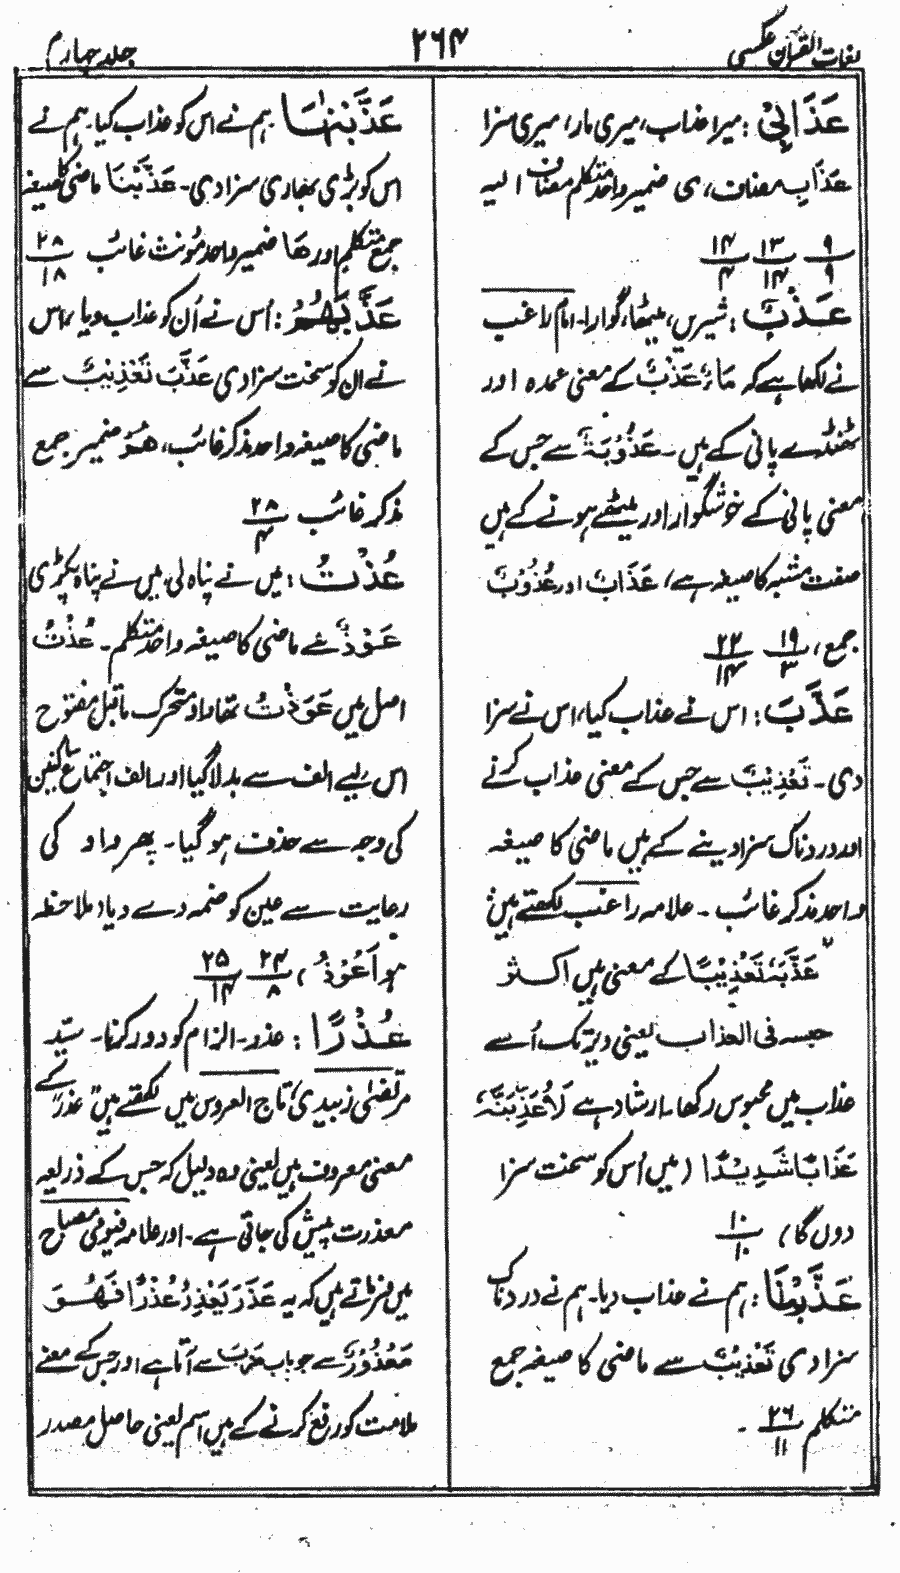 لغات القرآن عکسی
۲۶۴
جلد چہارم
عَذَابِیْ : میرا عذاب، میری مار، میری سزا
عَذَاب مضاف، ی ضمیر واحد متکلم مضاف الیہ
۹/۹ ۱۳/۱۴ ۱۴/۴
عَذْبٌ : شیریں، میٹھا، گوارا۔ امام راغب
نے لکھا ہے کہ مَاءٌ عَذْبٌ کے معنی عمدہ اور
ٹھنڈے پانی کے ہیں۔ عَذُوْبَۃٌ سے جس کے
معنی پانی کے خوشگوار اور میٹھے ہونے کے ہیں
صفت مشبہ کا صیغہ ہے، عَذَابٌ اور عُذُوْبٌ
جمع، ۱۹/۳ ۲۲/۱۴
عَذَّبَ : اس نے عذاب کیا، اس نے سزا
دی۔ تَعْذِیْبٌ سے جس کے معنی عذاب کرنے
اور دردناک سزا دینے کے ہیں ماضی کا صیغہ
واحد مذکر غائب ۔ علامہ راغب لکھتے ہیں
عَذَّبَہٗ تَعْذِیْبًا کے معنی ہیں اکثر
حبسہ فی العذاب یعنی دیر تک اُسے
عذاب میں محبوس رکھا۔ ارشاد ہے لَاُعَذِّبَنَّہٗ
عَذَابًا شَدِیْدًا (میں اُس کو سخت سزا
دوں گا) ۱۰/۱۰
عَذَّبْنَا : ہم نے عذاب دیا۔ ہم نے دردناک
سزا دی تَعْذِیْبٌ سے ماضی کا صیغہ جمع
متکلم ۲۶/۱۱ ۔
عَذَّبْنٰھَا ہم نے اس کو عذاب کیا۔ ہم نے
اس کو بڑی بھاری سزا دی۔ عَذَّبْنَا ماضی کا صیغہ
جمع متکلم اور ھَا ضمیر واحد مؤنث غائب ۲۸/۱۸
عَذَّبَھُمْ : اُس نے اُن کو عذاب دیا، اس
نے ان کو سخت سزا دی عَذَّبَ تَعْذِیْبٌ سے
ماضی کا صیغہ واحد مذکر غائب، ھُمْ ضمیر جمع
مذکر غائب ۲۸/۴
عُذْتُ : میں نے پناہ لی، میں نے پناہ پکڑی
عَوْذٌ سے ماضی کا صیغہ واحد متکلم ۔ عُذْتُ
اصل میں عَوَذْتُ تھا واو متحرک ماقبل مفتوح
اس لیے الف سے بدلا گیا اور الف اجتماع ساکنین
کی وجہ سے حذف ہو گیا۔ پھر واو کی
رعایت سے عین کو ضمہ دے دیا (ملاحظہ
ہو اَعُوْذُ) ۲۴/۸ ۲۵/۱۴
عُذْرًا : عذر۔ الزام کو دور کرنا۔ سیّد
مرتضیٰ زبیدی تاج العروس میں لکھتے ہیں" عذر کے
معنی معروف ہیں یعنی وہ دلیل کہ جس کے ذریعہ
معذرت پیش کی جاتی ہے۔ اور علامہ فیومی مصباح
میں فرماتے ہیں کہ یہ عَذَرَ یَعْذِرُ عُذْرًا فَھُوَ
مَعْذُوْرٌ سے جو باب ضَرَبَ سے آتا ہے اور جس کے معنے
ملامت کو رفع کرنے کے ہیں اسم یعنی حاصل مصدر